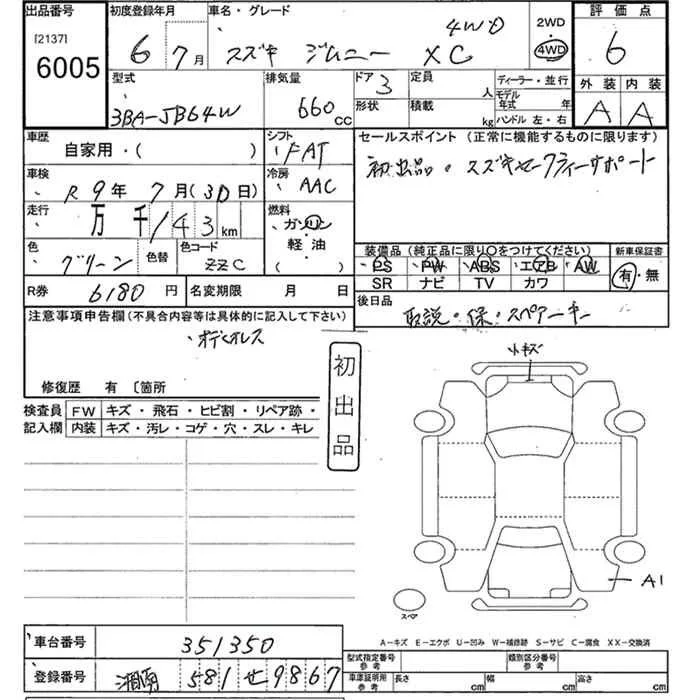 出品番号 初度登録年月 車名・グレード 2WD 評価点
[2137] 6005 6 7月 スズキ ジムニー XC 4WD 4WD 6
型式 排気量 ドア 定員 ディーラー・並行 外装 内装
3BA-JB64W 660cc 3 人 モデル年式 年 A A
形状 積載 kg ハンドル 左・右
車歴 シフト セールスポイント (正常に機能するものに限ります)
自家用・( ) FAT 初出品・スズキセーフティーサポート
車検 冷房
R 9年 7月(30日) AAC
走行 燃料
万 千 143 km ガソリン 軽・油 ( )
装備品(純正品に限り○をつけてください) 新車保証書
色 色替 色コード PS PW ABS エアB AW 有・無
グリーン ZZC SR ナビ TV カワ
R券 6180円 名変期限 月 日 後日品
取説・保・スペアーキー
注意事項申告欄(不具合内容等は具体的に記入して下さい)
・オーディオレス
修復歴 有 〔箇所
初出品
検査員 FW キズ・飛石・ヒビ割・リペア跡・
記入欄 内装 キズ・汚レ・コゲ・穴・スレ・キレ
小キズ
A1
スペア
A-キズ E-エクボ U-凹み W-補修跡 S-サビ C-腐食 XX-交換済
車台番号 351350
型式指定番号 参考 類別区分番号 参考
登録番号 湘南 581 せ 9867
車庫証明用 参考 長さ cm 幅 cm 高さ cm